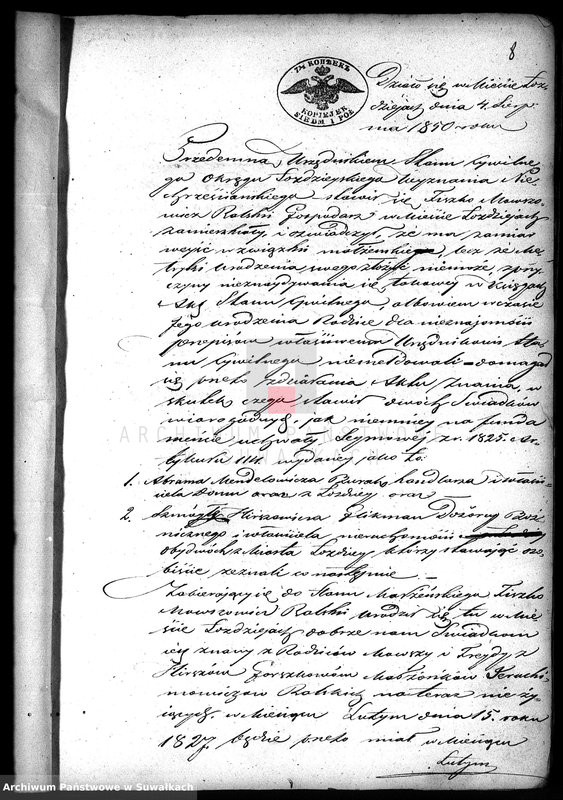 8
7½ КОПѢЕКЪ
KOPIEJEK
SIEDM I PÓŁ
Działo się w Mieście Łoz-
dziejach dnia 4. Sierp-
nia 1850 roku
Przedemną Urzędnikiem Stanu Cywilne-
go Okręgu Łozdzieyskiego Wyznania Nie-
Chrześcianskiego stawił się Fiszko Mowszo-
wicz Ralski Gospodarz w Mieście Łozdziejach
zamieszkały, i oświadczył, że ma zamiar
wejść w związki małżeńskie, lecz że Me-
tryki Urodzenia swego złożyć niemoże z przy-
czyny nieznajdywania się takowej w Księgach
Akt Stanu Cywilnego, albowiem w czasie
Jego urodzenia Rodzice dla nieznajomości
przepisów właściwemu Urzędnikowi Sta-
nu Cywilnego niemeldowali – domagał
się przeto zdziałania Aktu Znania, w
skutek czego stawił dwóch Świadków
wiarogodnych, jak niemniej na funda-
mencie uchwały Seymowej z r. 1825. Ar-
tykułu 114. wydanej jako to:
1. Abrama Mendelowicza handlarza i właści-
ciela Domu oraz z Łozdziey oraz
2. Hirszowicza Glikman Dozórcy Boż-
nicznego i właściciela nieruchomości
obydwóch z Miasta Łozdziey, którzy stawając oso-
biście zeznali co następuie. –
Zabierający się do Stanu Małżeńskiego Fiszko
Mowszowicz Ralski urodził się tu w Mie-
ście Łozdziejach dobrze nam Świadkom
iest znany z Rodziców Mowszy i Freydy z
Hirszów Gorszkowów Małżonków
Ralskich na teraz nie ży-
iących, w Miesiącu Lutym dnia 15. roku
1827, będzie przeto miał w Miesiącu
Lutym
ARCHIWUM PAŃSTWOWE
Archiwum Państwowe w Suwałkach